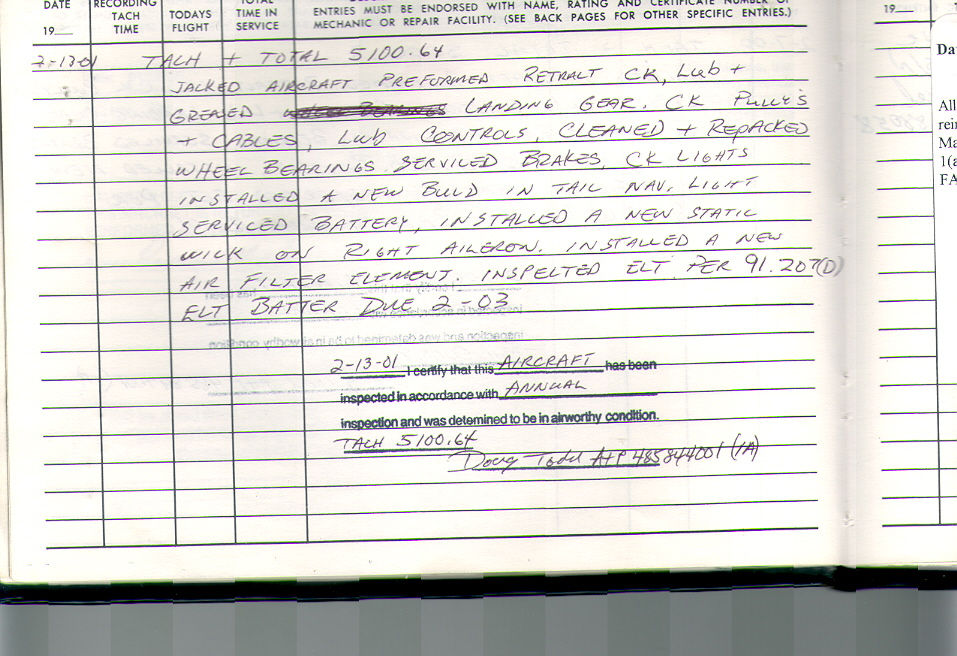 DATE
19
RECORDING
TACH
TIME
TODAYS
FLIGHT
TOTAL
TIME IN
SERVICE
ENTRIES MUST BE ENDORSED WITH NAME, RATING AND CERTIFICATE NUMBER OF
MECHANIC OR REPAIR FACILITY. (SEE BACK PAGES FOR OTHER SPECIFIC ENTRIES.)
2-13-01 TACH + TOTAL 5100.64
JACKED AIRCRAFT PREFORMED RETRALT CK, Lub +
GREASED WHEEL BEARINGS LANDING GEAR. CK PULLY'S
+ CABLES, Lub CONTROLS, CLEANED + REPACKED
WHEEL BEARINGS. SERVICED BRAKES, CK LIGHTS
INSTALLED A NEW BULD IN TAIL NAV. LIGHT
SERVICED BATTERY, INSTALLED A NEW STATIC
WICK ON RIGHT AILERON. INSTALLED A NEW
AIR FILTER ELEMENT. INSPELTED ELT PER 91.207(D)
ELT BATTER DUE 2-03
2-13-01 I certify that this AIRCRAFT has been
inspected in accordance with ANNUAL
inspection and was detemined to be in airworthy condition.
TACH 5100.64
Doug Todd A+P 485844001 (IA)
19
Da
All
rei
Ma
1(a
FA